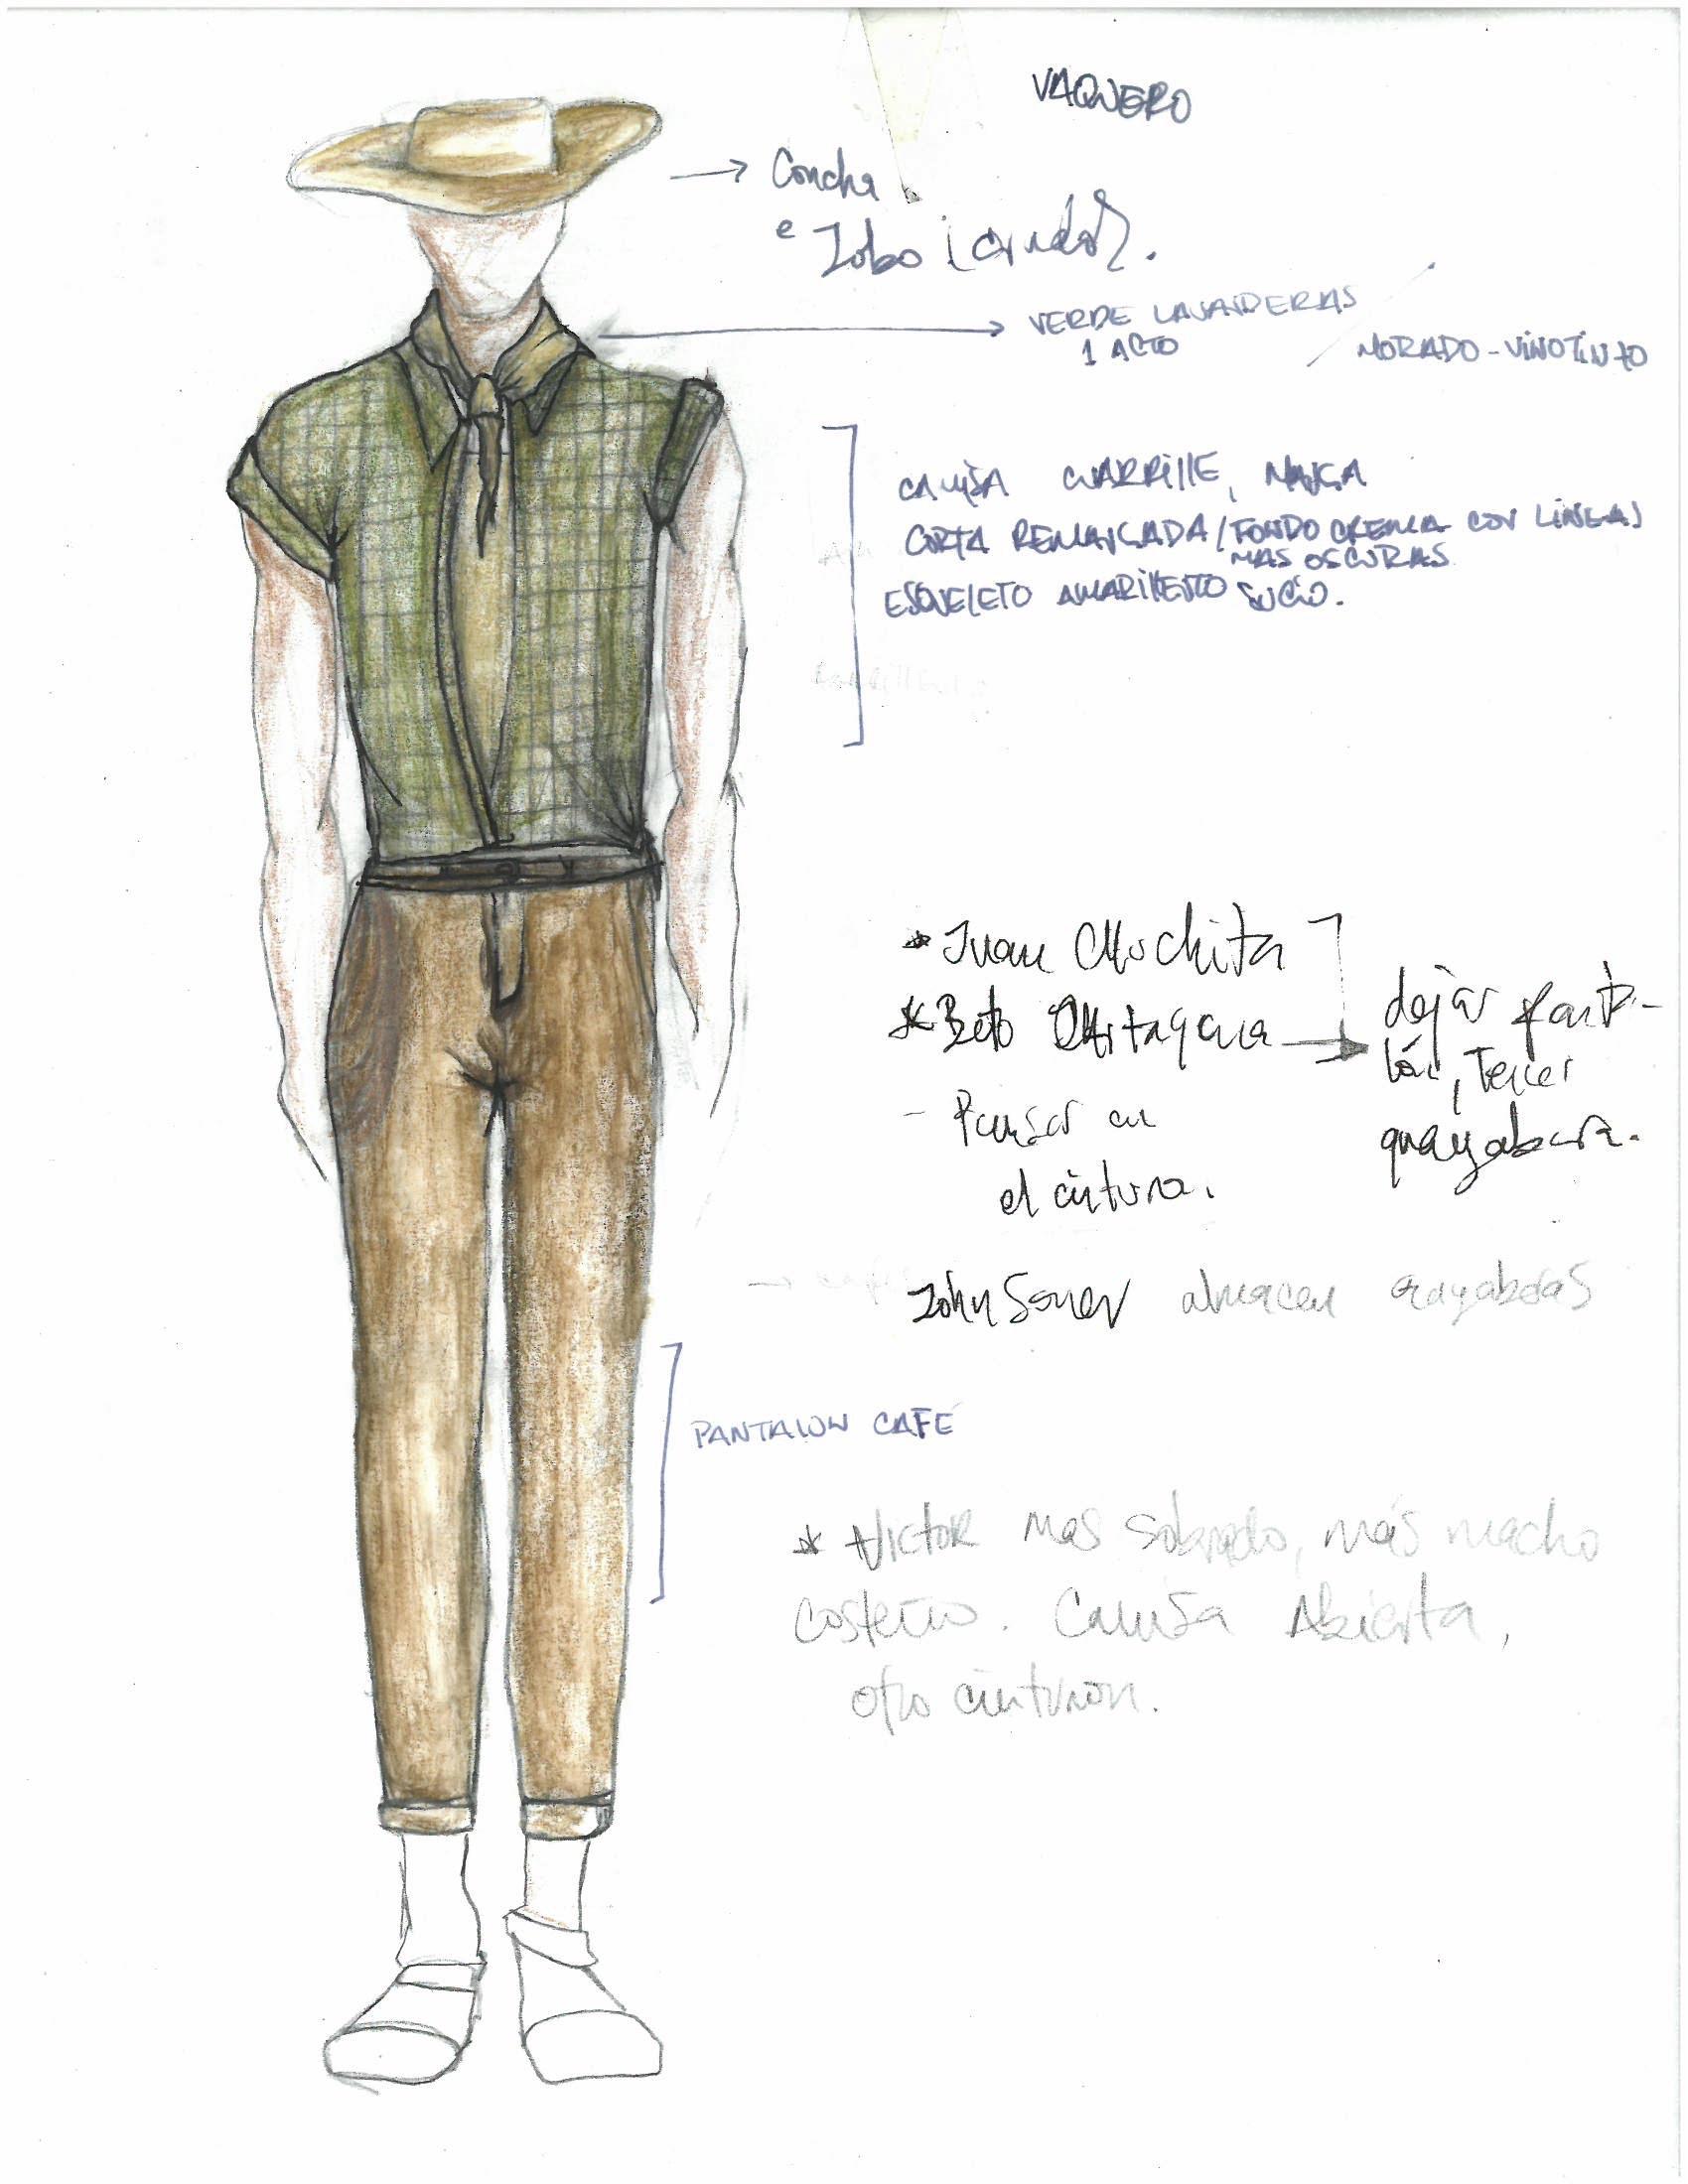 VAQUERO
Concha
e Lobo (crudo).
VERDE LAVANDERAS
1 ACTO
MORADO-VINOTINTO
CAMISA CUARRILLE, MANGA
CORTA REMANGADA / FONDO CREMA CON LINEAS
MAS OSCURAS
ESQUELETO AMARILLENTO SUCIO.
* Juan Mochita
* Beto
dejar panta-
lón, tercer
guayabera.
- Pensar en
el cintura.
almacen guayaberas
PANTALON CAFÉ
* VICTOR mas sobrado, más macho
costeño. Camisa Abierta,
otro cinturón.